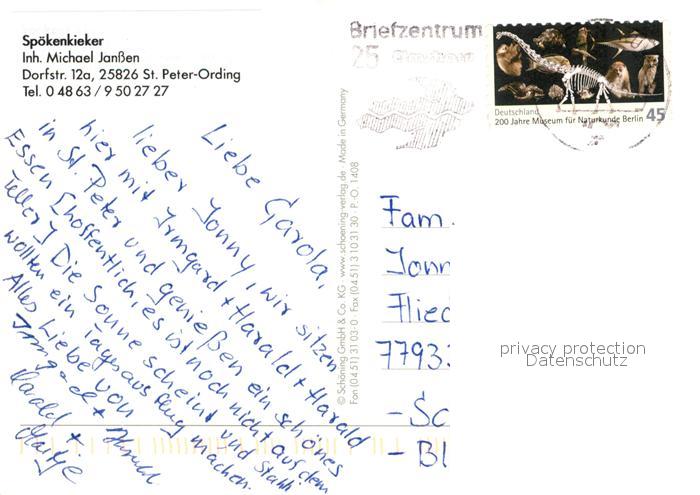 Spökenkieker
Inh. Michael Janßen
Dorfstr. 12a, 25826 St. Peter-Ording
Tel. 0 48 63 / 9 50 27 27
Briefzentrum
25
Deutschland
200 Jahre Museum für Naturkunde Berlin 45
© Schöning GmbH & Co. KG · www.schoening-verlag.de · Made in Germany
Fon (0451) 3103-0 · Fax (0451) 3103130 · P.-O. 1408
Liebe Carola,
lieber Jonny, wir sitzen
hier mit Irmgard + Harald + Harald
in St. Peter und genießen ein schönes
Essen [hoffentlich, es ist noch nicht auf dem
Teller] Die Sonne scheint und
wollten ein Tagesausflug machen.
Alles Liebe von
Irmgard + Harald
Harald +
Fam.
Jonn
Flied
7793
privacy protection
Datenschutz
- Sc
- Bl